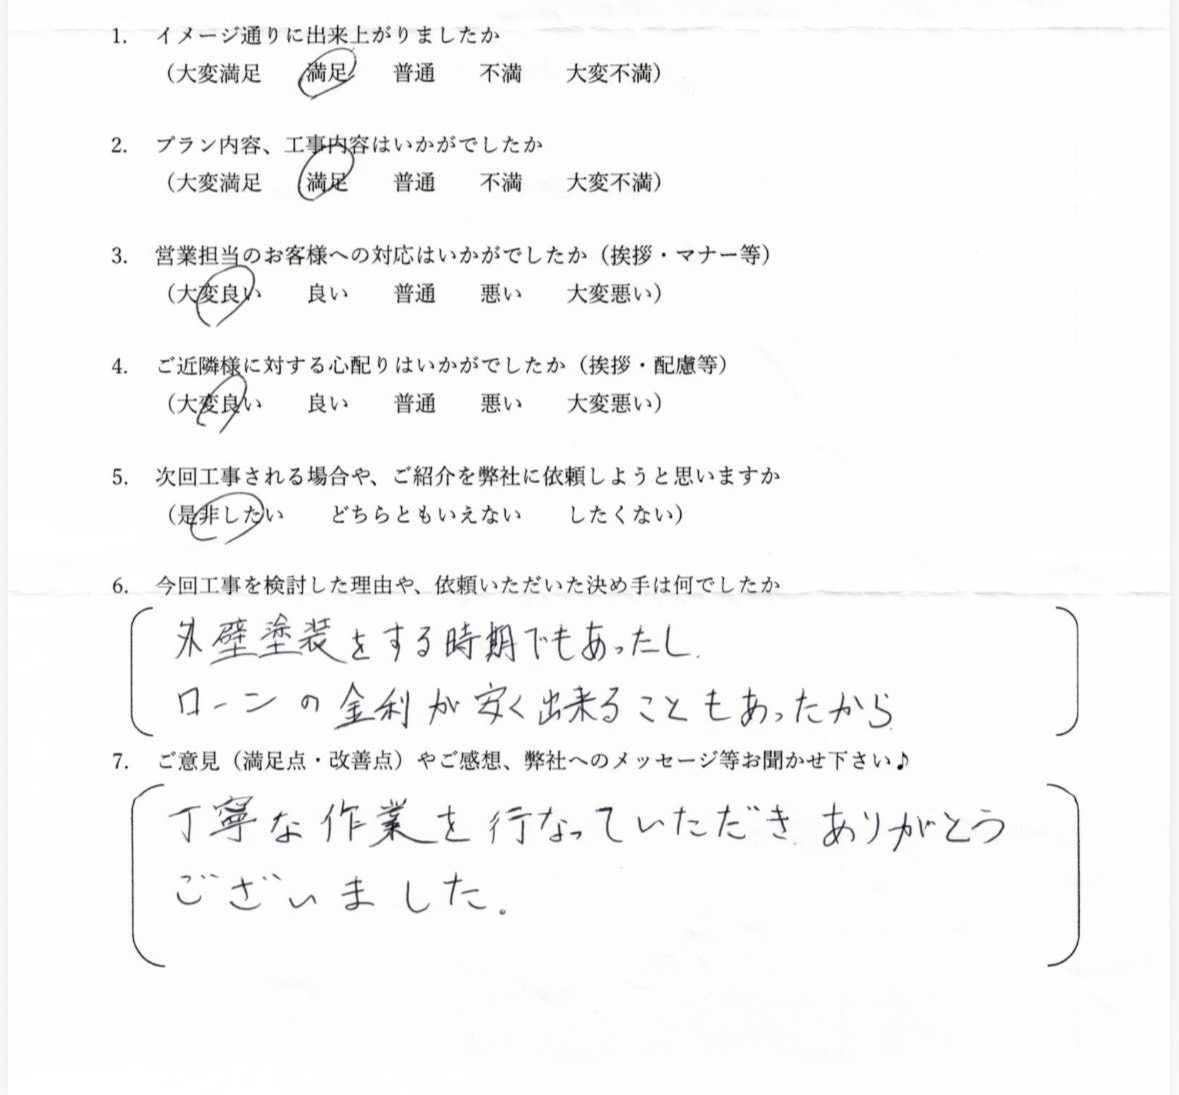 1. イメージ通りに出来上がりましたか
（大変満足　満足　普通　不満　大変不満）
2. プラン内容、工事内容はいかがでしたか
（大変満足　満足　普通　不満　大変不満）
3. 営業担当のお客様への対応はいかがでしたか（挨拶・マナー等）
（大変良い　良い　普通　悪い　大変悪い）
4. ご近隣様に対する心配りはいかがでしたか（挨拶・配慮等）
（大変良い　良い　普通　悪い　大変悪い）
5. 次回工事される場合や、ご紹介を弊社に依頼しようと思いますか
（是非したい　どちらともいえない　したくない）
6. 今回工事を検討した理由や、依頼いただいた決め手は何でしたか
外壁塗装をする時期でもあったし、
ローンの金利が安く出来ることもあったから
7. ご意見（満足点・改善点）やご感想、弊社へのメッセージ等お聞かせ下さい♪
丁寧な作業を行なっていただき、ありがとう
ございました。